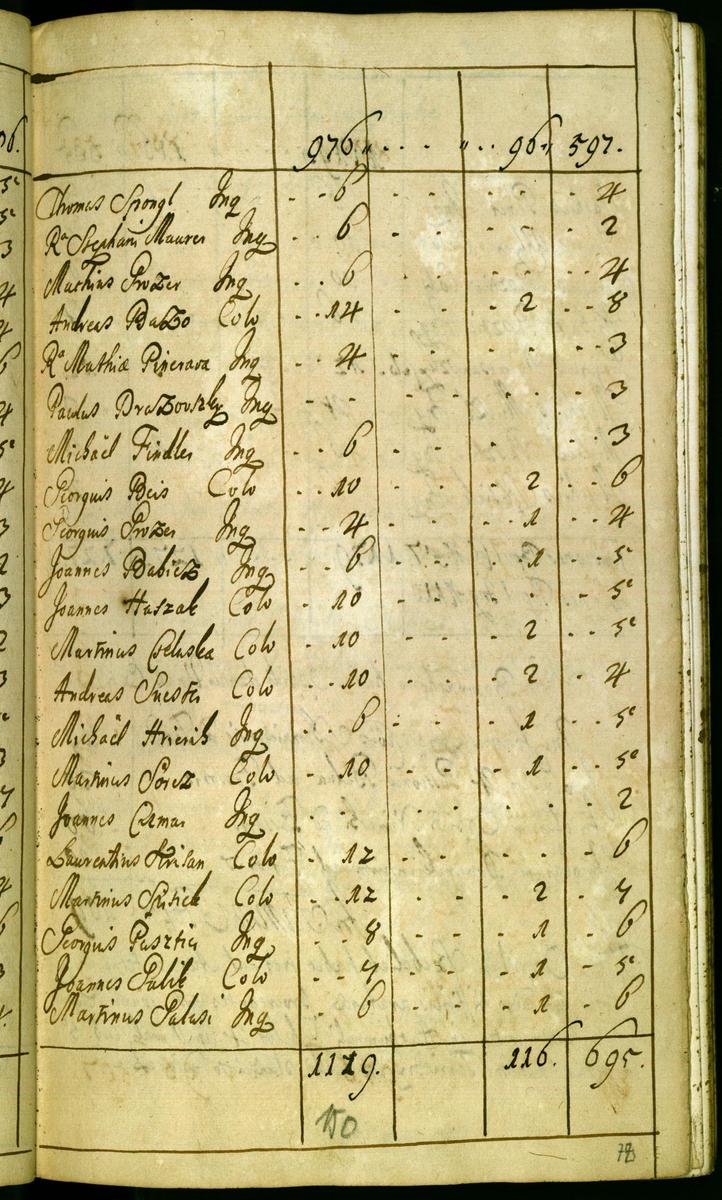 976 " . . . " . . 96 " 597.
Thomas Spongl Inq . . 6 . . . . . . 4
Ra Stephani Maurer Inq . . 6 . . . . . . 2
Mathias Prozer Inq . . 6 . . . . . . 4
Andreas Balzo Colo . . 14 . . . . 2 . . 8
Ra Mathiæ Pinerava Inq . . 4 . . . . . . 3
Paulus Drazovszky Inq . . . . . . . . 3
Michaël Findler Inq . . 6 . . . . . . 3
Georgius Beis Colo . . 10 . . . . 2 . . 6
Georgius Prozer Inq . . 4 . . . . 1 . . 4
Joannes Babicz Inq . . 6 . . . . 1 . . 5
Joannes Haszak Colo . 10 . . . . . . 5
Martinus Celuska Colo . 10 . . . . 2 . . 5
Andreas Suester Colo . . 10 . . . . 2 . . 4
Michaël Hrierik Inq . . 6 . . . . 1 . . 5
Martinus Sorez Colo . 10 . . . . 1 . . 5
Joannes Czmar Inq . . . . . . . . 2
Laurentius Krisan Colo . 12 . . . . . . 6
Martinus Spisiek Colo . . 12 . . . . 2 . 7
Georgius Pasztier Inq . . 8 . . . . 1 . 6
Joannes Palik Colo . . 7 . . . . 1 . . 5
Martinus Palasi Inq . 6 . . . . 1 . 6
1119. 116. 695.
150
78